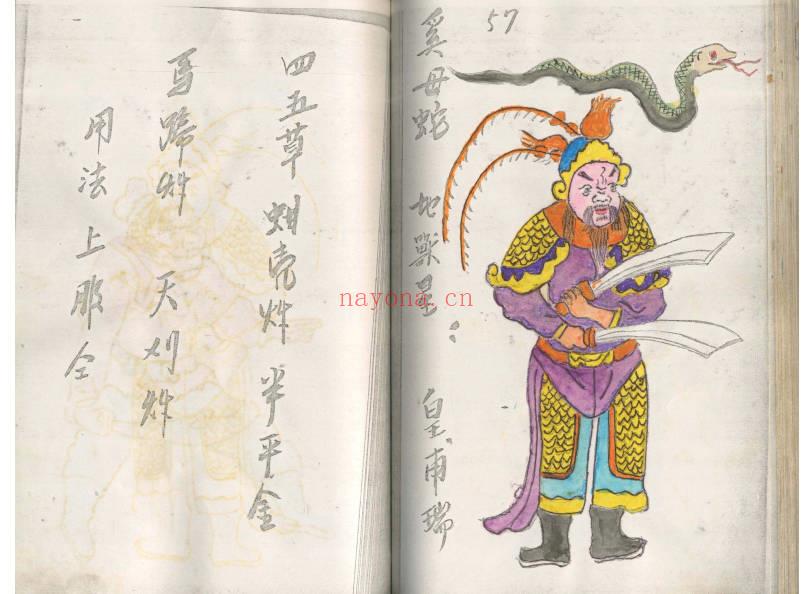 57
奚母蛇 地獸星：皇甫瑞
四五草 蚶壳炸 半平金
馬蹄炸 天刈炸
用法上服仝
nayona.cn